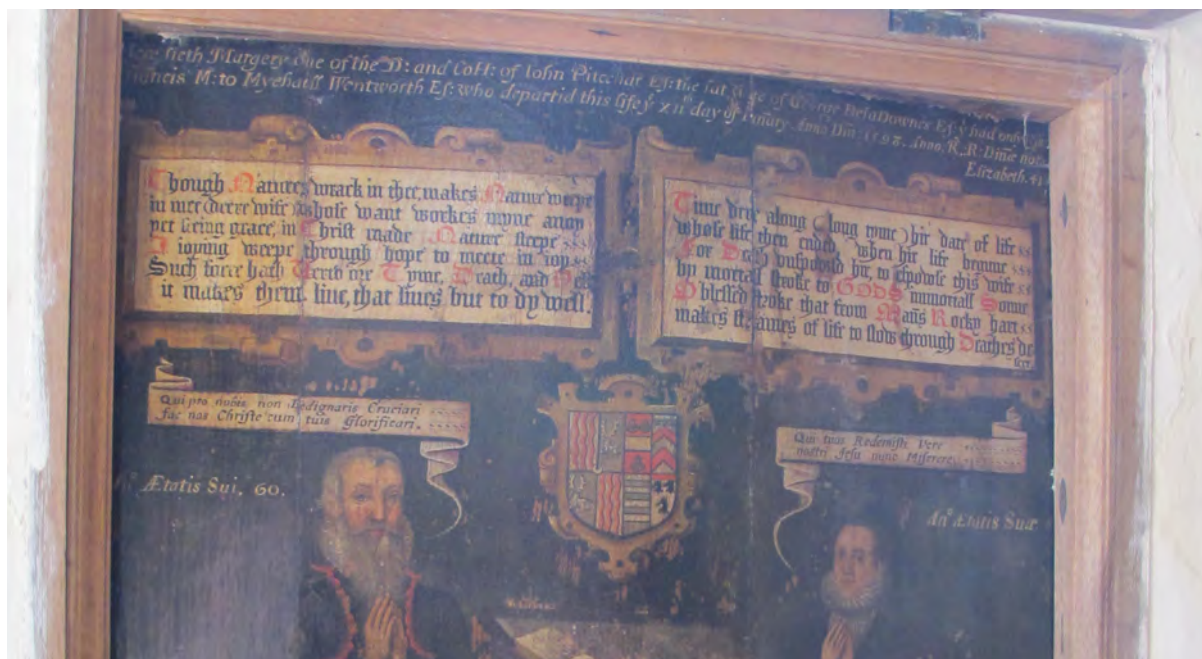 lieth Margery one of the D: and CoH: of Iohn Es: the of George Es: ẏ had only
M: to Wentworth Es: who departid this life ẏ xiiᵗʰ day of Ianuary Anno Din: 1598. Anno. R. R: Dinæ
Elizabeth. 41
Though Natures wrack in thee, makes Nature weepe
in mee (deere wife) whose want workes myne anoy
yet seeing grace, in Christ made Nature sleepe
I ioying weepe through hope to meete in ioy
Such force hath Tyme, Death, and
it makes them liue, that liues but to dy well.
Time drew along (long tyme) hir date of life
whose life then ended, when hir life begune
For Death vnspowsd hir, to espowse this wife
by mortall stroke to GODS immortall Sonne
O blessed stroke that from Mans Rocky hart
makes streames of life to flow through Deathes de
sert
Qui pro nobis non Dedignaris Cruciari
fac nos Christe cum tuis Glorificari.
Qui tuos Redemisti Vere
nostri Jesu nunc Miserere
Ætatis Sui. 60.
Anº Ætatis Suæ